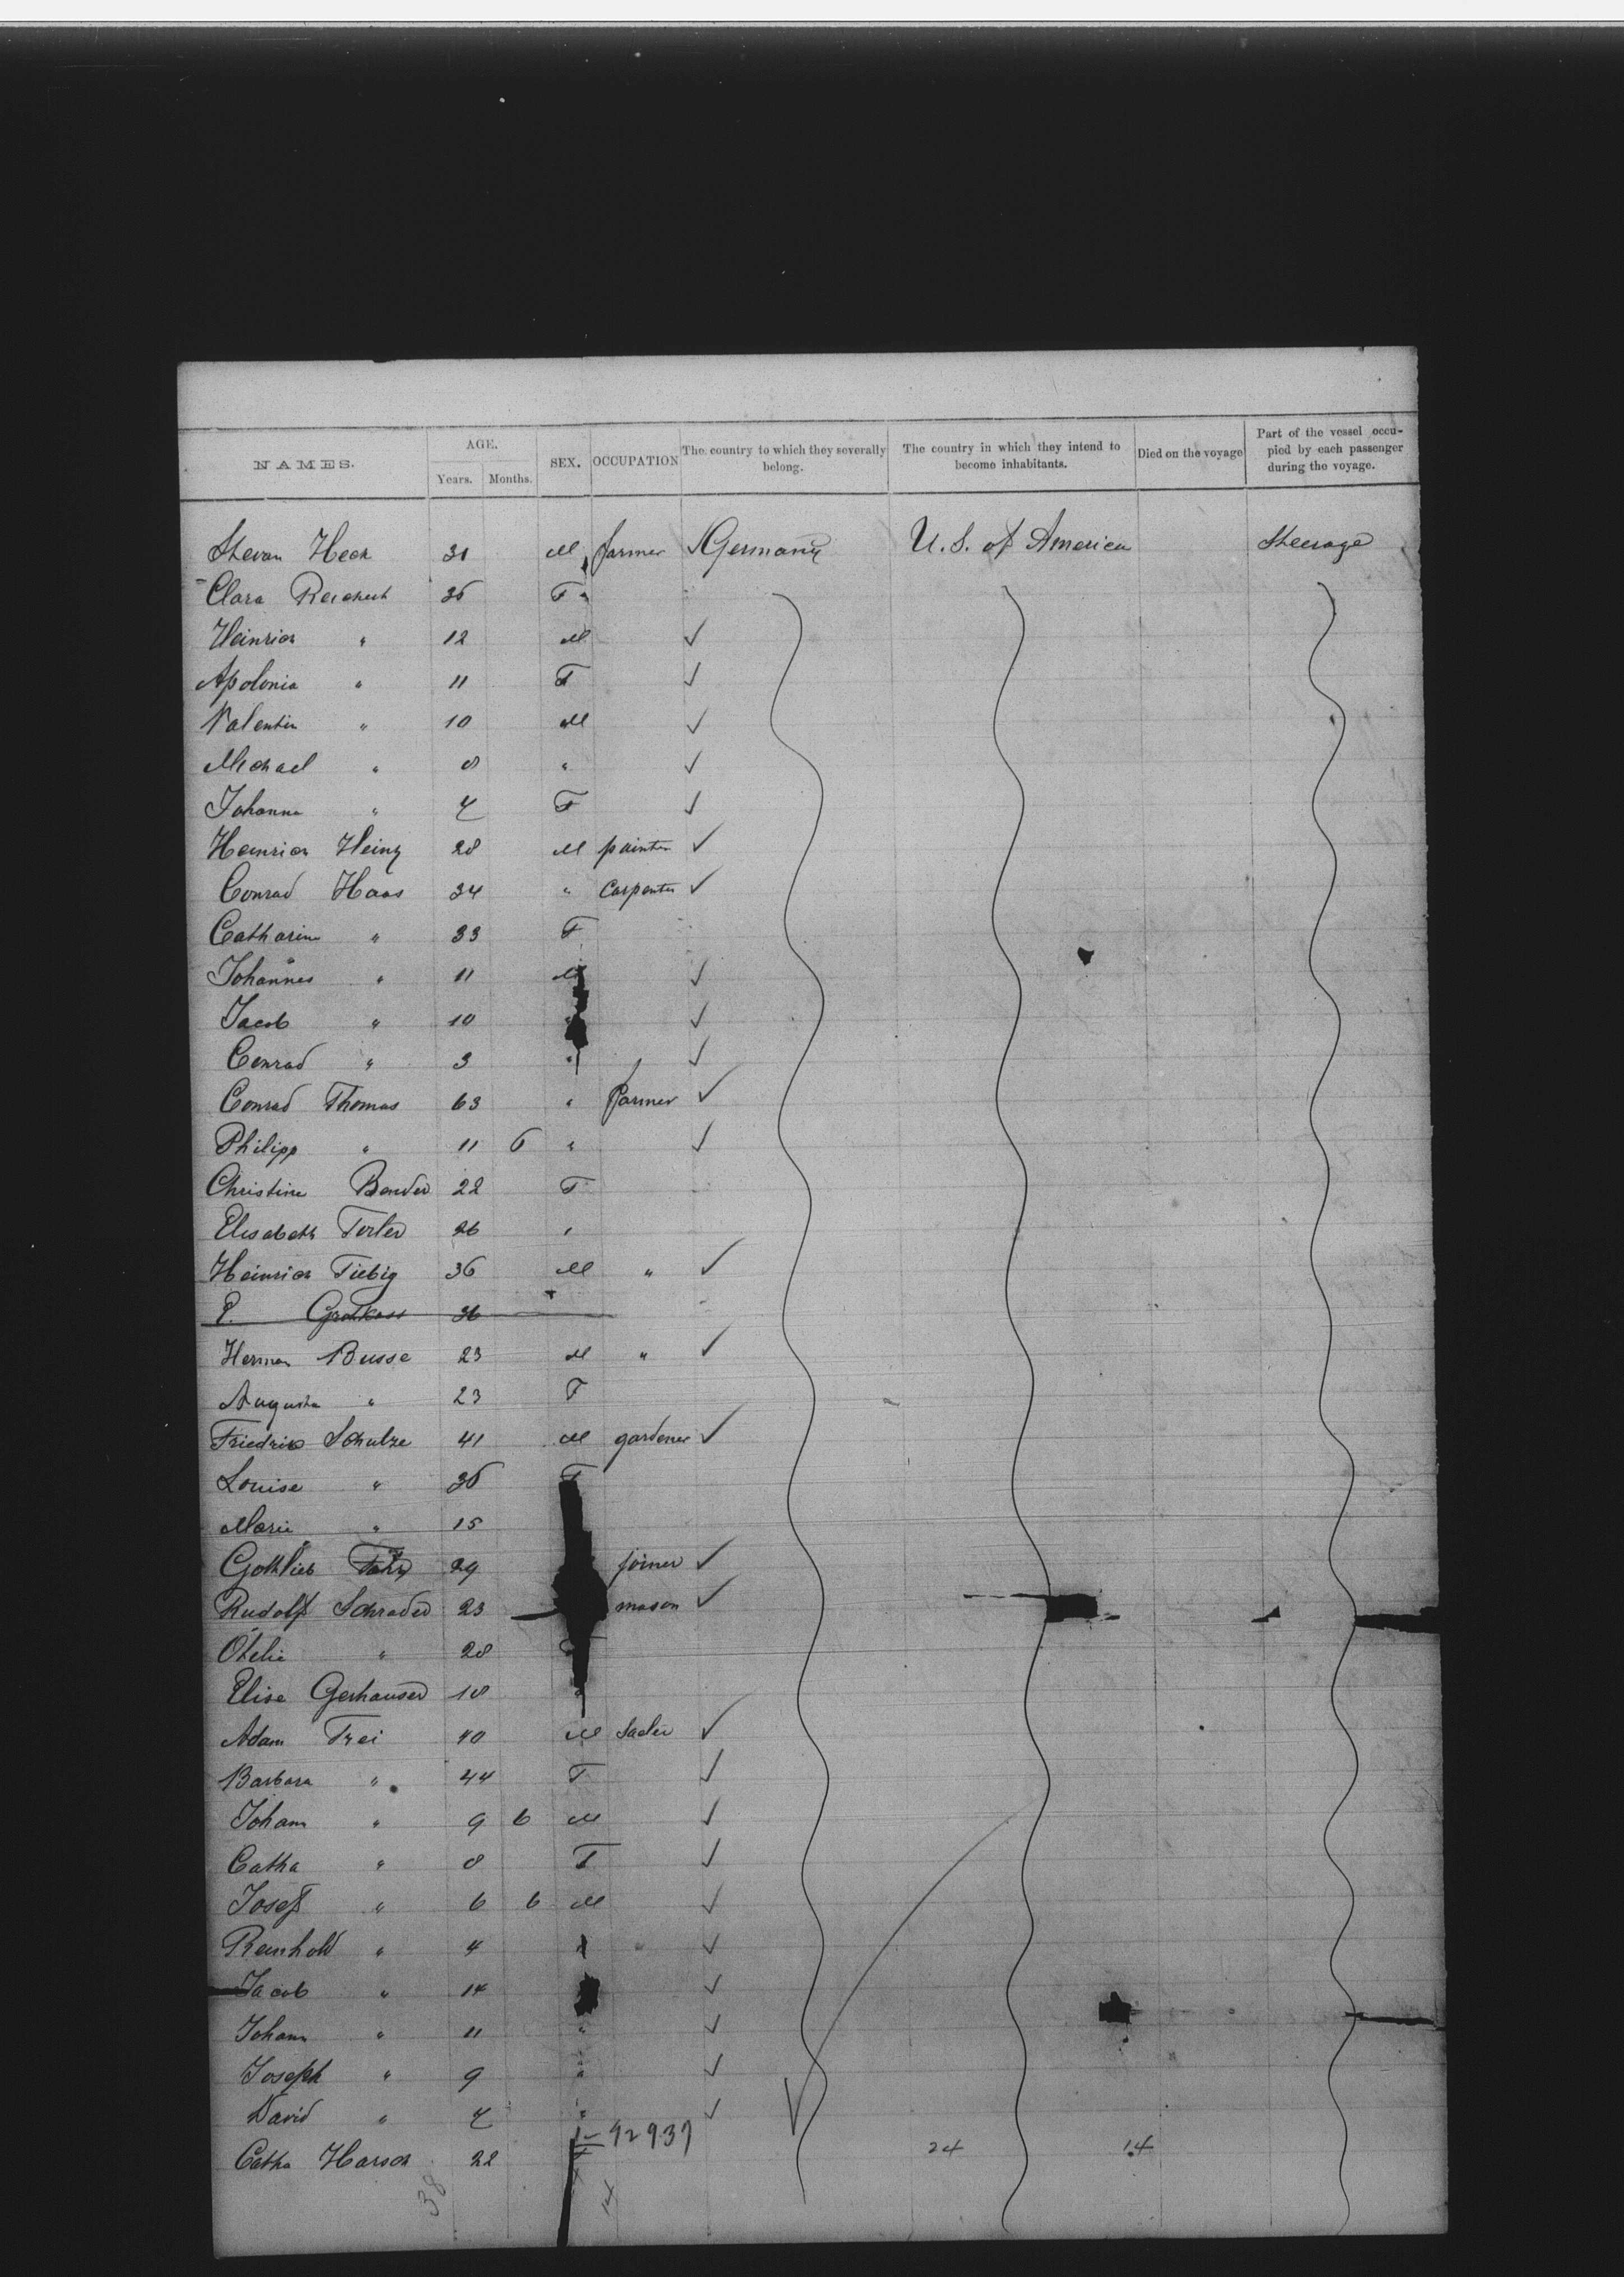 NAMES. AGE. Years. Months. SEX. OCCUPATION The country to which they severally belong. The country in which they intend to become inhabitants. Died on the voyage Part of the vessel occupied by each passenger during the voyage.
Stevan Heck 31 M farmer Germany U.S. of America Steerage
Clara Reichert 35 F
Heinrich " 12 M
Apolonia " 11 F
Valentin " 10 M
Michael " 8 "
Johanna " 7 F
Heinrich Heinz 28 M painter
Conrad Haas 34 " Carpenter
Catharina " 33 F
Johannes " 11 M
Jacob " 10
Conrad " 3 "
Conrad Thomas 63 " farmer
Philipp " 11 6 "
Christine Bender 22 F
Elisabeth 26 "
Heinrich Fiebig 36 M "
P. Grotkass 36
Herman Busse 23 M "
Augusta " 23 F
Friedrich Schulze 41 M gardener
Louise " 35 F
Marie " 15
Gottlieb 29 joiner
Rudolf Schrader 23 mason
Otelie " 28
Elise Gerhauser 18 "
Adam Frei 40 M
Barbara " 44 F
Johann " 9 6 M
Catha " 8 F
Josef " 6 6 M
Reinhold " 4
Jacob " 14
Johann " 11 "
Joseph " 9 "
David " 7 "
92937
Catha Harsch 22 F 24 14
38 14